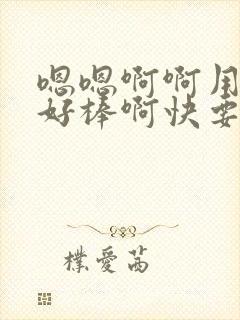 嗯嗯啊啊用
好棒啊快要
樸愛茜